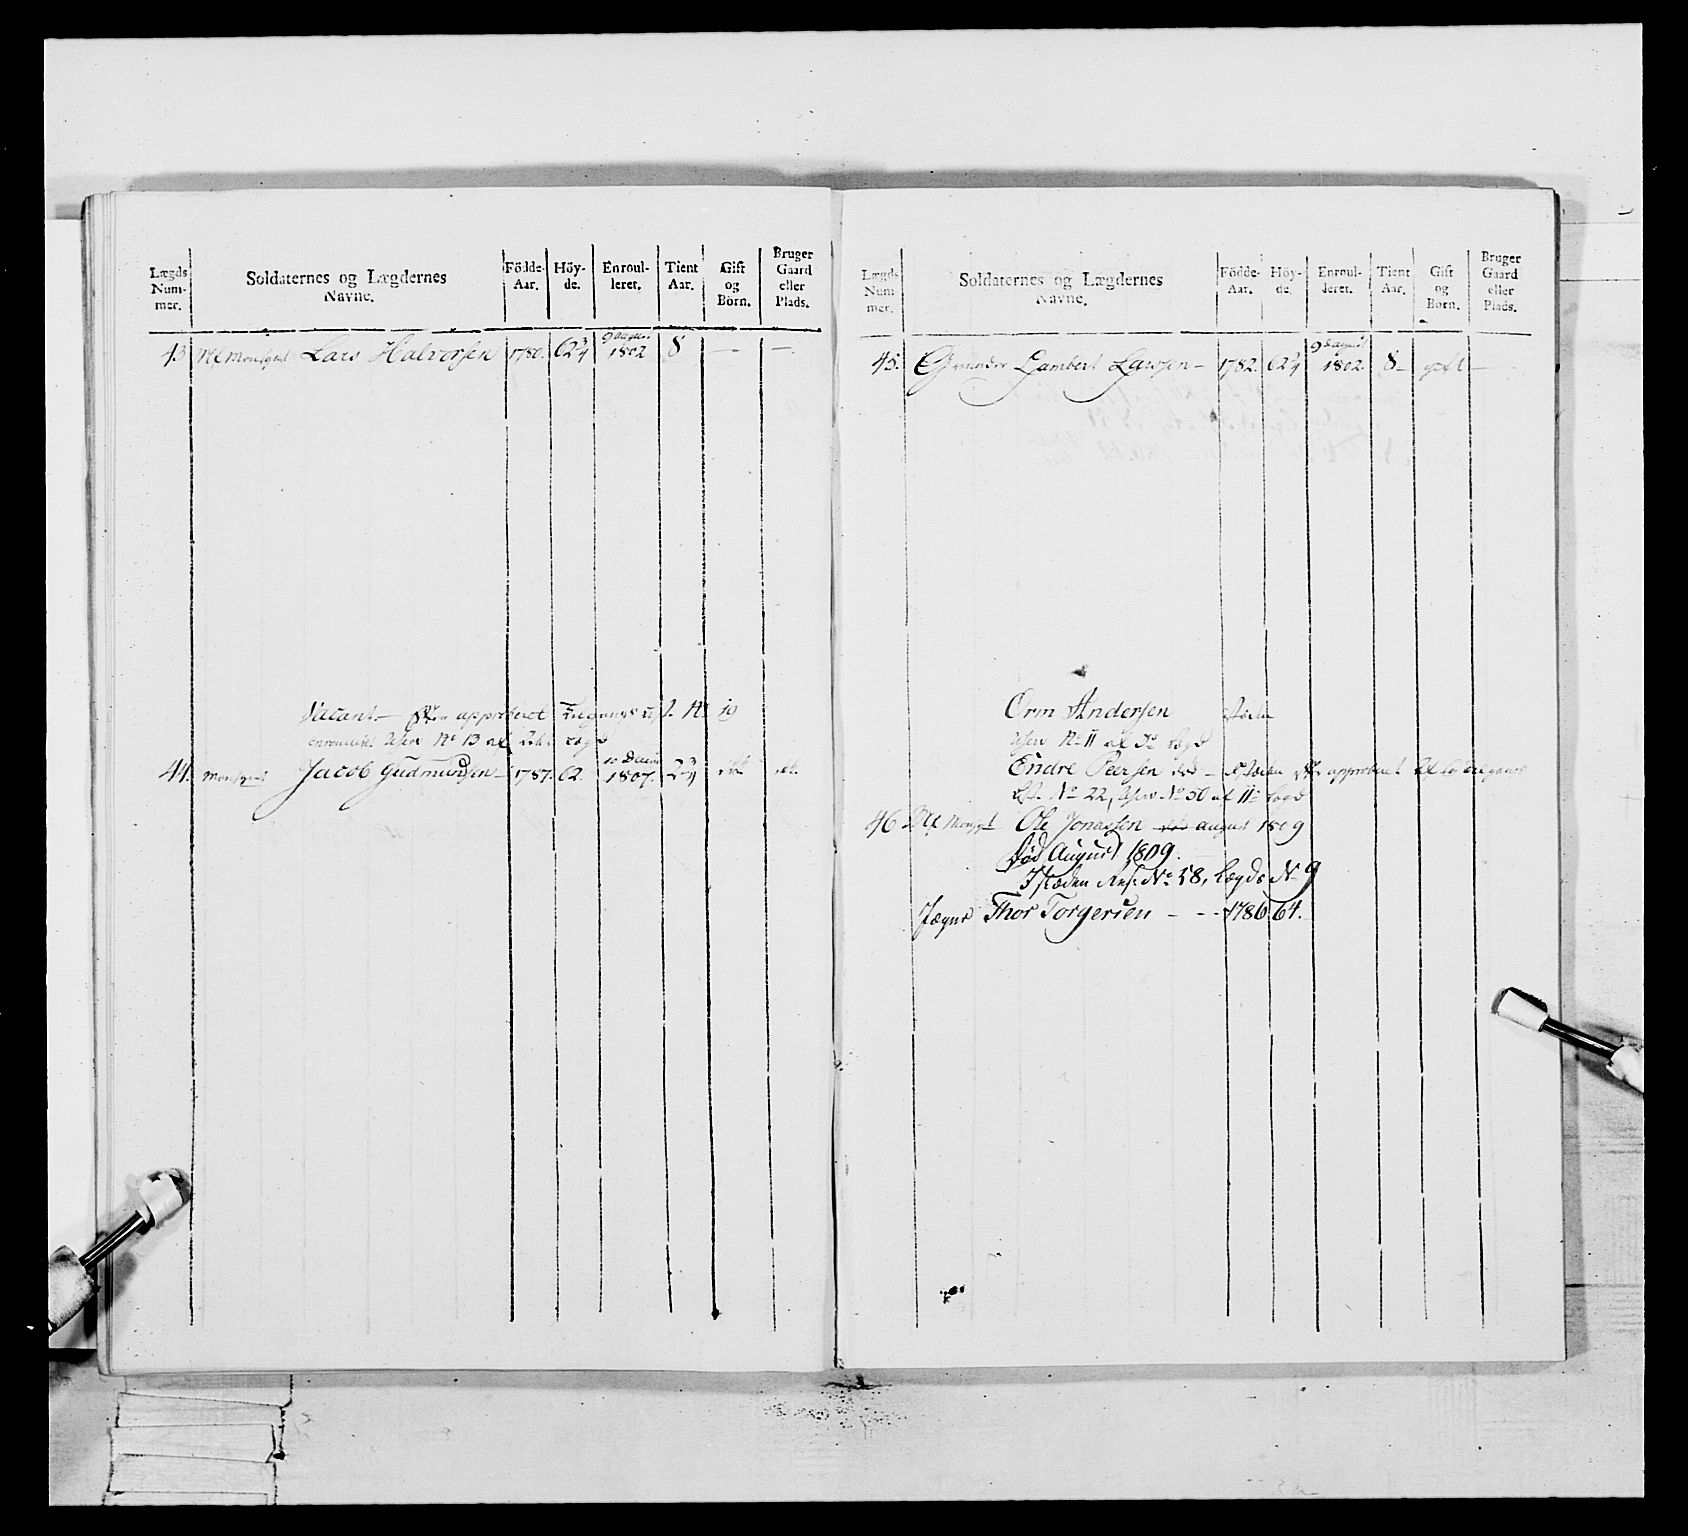 Lægds Num- mer.
Soldaternes og Lægdernes Navne.
Födde- Aar.
Höy- de.
Enroul- leret.
Tient Aar.
Gift og Börn.
Bruger Gaard eller Plads.
43 Lars Halvorsen 1780. 62 3/4 9 August 1802 8 — —
Vacant — approberet N 19
enrouleret N° 13 af Lægd
44. Jacob Gudmundsen — 1787. 62. 10 Decem 1807. 2 3/4
Lægds Num- mer.
Soldaternes og Lægdernes Navne.
Födde- Aar.
Höy- de.
Enroul- leret.
Tient Aar.
Gift og Börn.
Bruger Gaard eller Plads.
45. Lambert Larssen — 1782. 62 3/4 9 August 1802. 8 — gift —
Orm Andersen
N° 11 af 3de Lægd
Endre Peersen død — approberet
N° 22, N° 50 af 11te Lægd
46 Ole Jonassen død august 1809
Død August 1809.
I steden Res: N° 58, Lægds N 9
Jæger Thor Torgersen - - - 1786. 64.